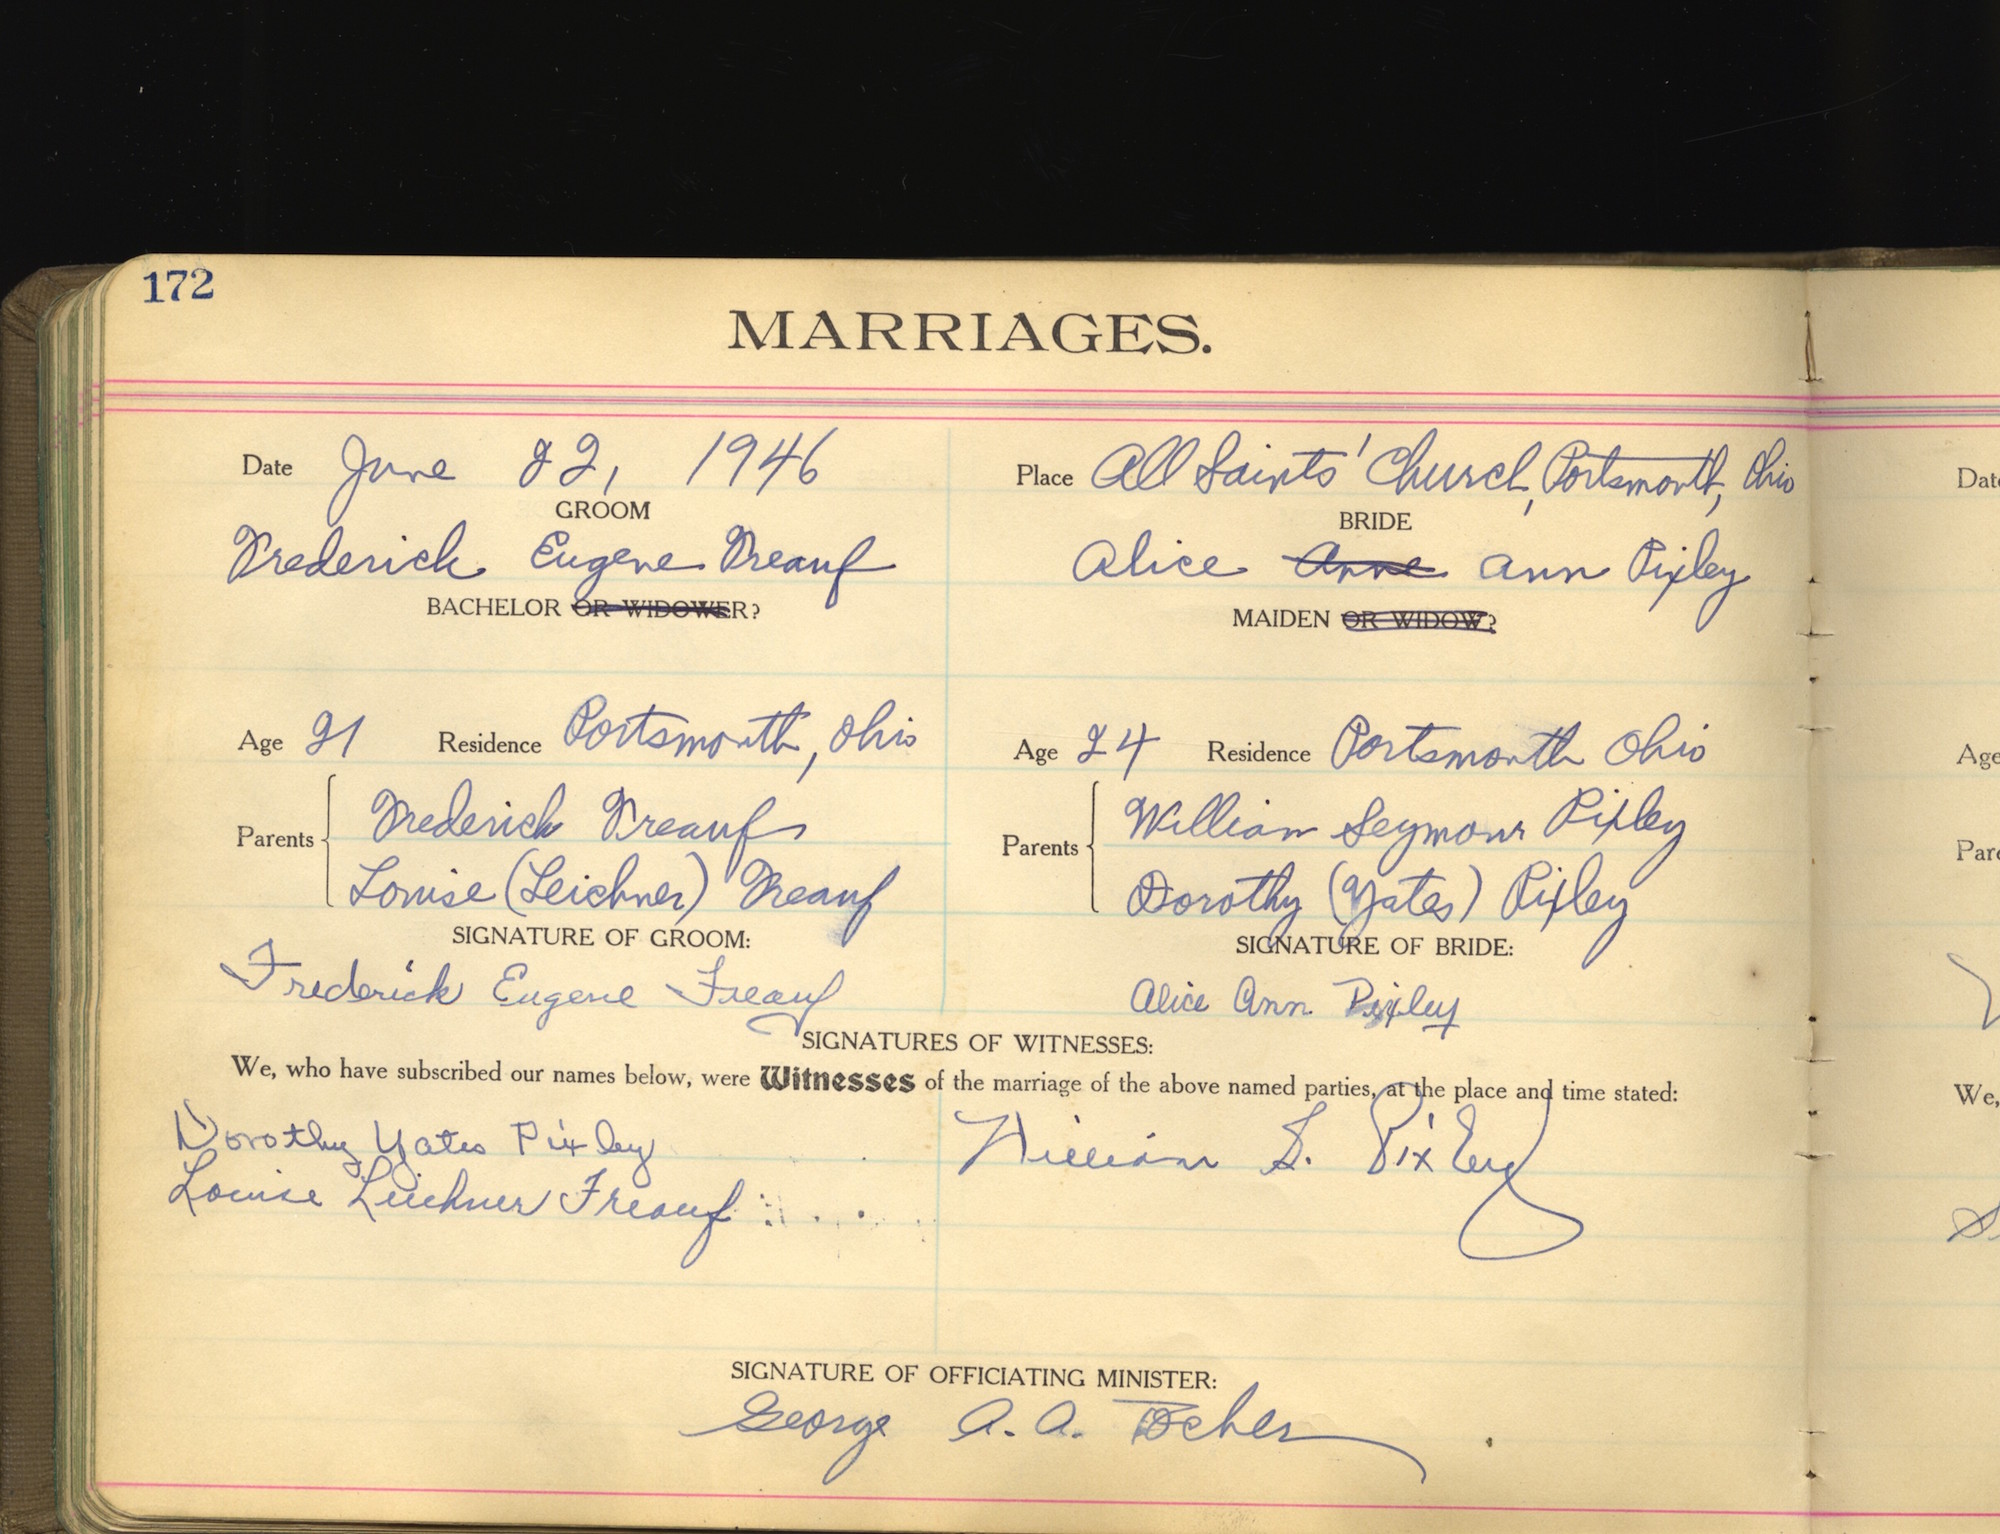 172
MARRIAGES.
Date June 22, 1946
Place All Saints' Church, Portsmouth, Ohio
GROOM
BRIDE
Frederick Eugene Freauf
Alice Anne Ann Pixley
BACHELOR OR WIDOWER?
MAIDEN OR WIDOW?
Age 21 Residence Portsmouth, Ohio
Age 24 Residence Portsmouth Ohio
Parents
Frederick Freauf
Louise (Leichner) Freauf
Parents
William Seymour Pixley
Dorothy (Yates) Pixley
SIGNATURE OF GROOM:
SIGNATURE OF BRIDE:
Frederick Eugene Freauf
Alice Ann Pixley
SIGNATURES OF WITNESSES:
We, who have subscribed our names below, were Witnesses of the marriage of the above named parties, at the place and time stated:
Dorothy Yates Pixley
William S. Pixley
Louise Leichner Freauf
SIGNATURE OF OFFICIATING MINISTER:
George A. A. Tocher
Date
Age
Pare
We,